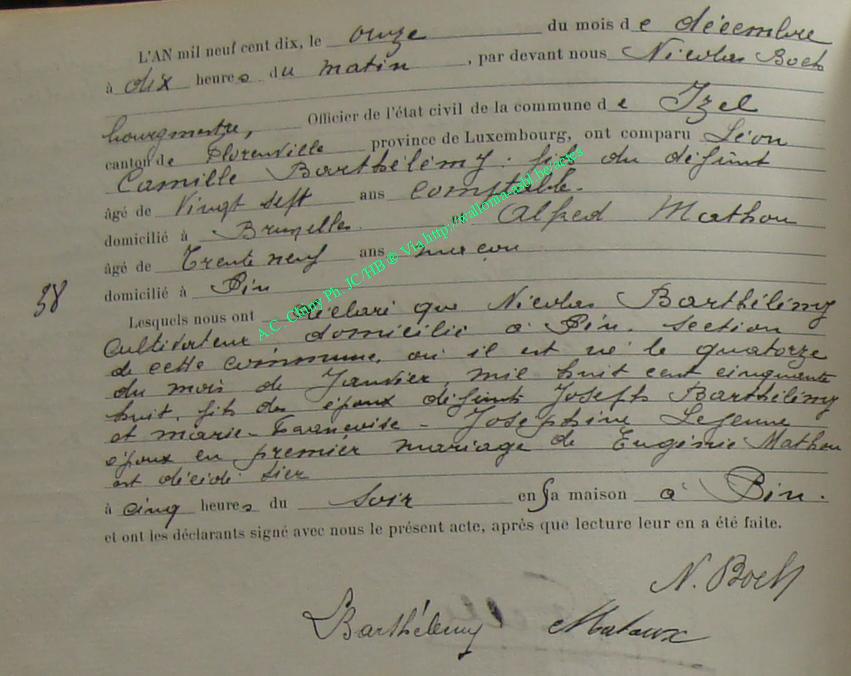 L'AN mil neuf cent dix, le onze du mois de décembre
à dix heures du matin, par devant nous Nicolas Boch
bourgmestre, Officier de l'état civil de la commune de Izel
canton de Florenville province de Luxembourg, ont comparu Léon
Camille Barthélémy. fils du défunt
âgé de Vingt sept ans comptable.
domicilié à Bruxelles. Alfred Mathou
âgé de Trente neuf ans maçon
domicilié à Pin
58
Lesquels nous ont déclaré que Nicolas Barthélémy
Cultivateur domicilié à Pin. section
de cette commune, où il est né le quatorze
du mois de Janvier, mil huit cent cinquante
huit, fils des époux défunts Joseph Barthélémy
et marie-Françoise-Josephine Lejeune
époux en premier mariage de Eugénie Mathou
est décédé hier
à cinq heures du Soir en sa maison à Pin.
et ont les déclarants signé avec nous le présent acte, après que lecture leur en a été faite.
N. Boch
Barthélemy
A.C. Chiny Ph. JC/HB ® Via http://walloma-asbl.be/actes